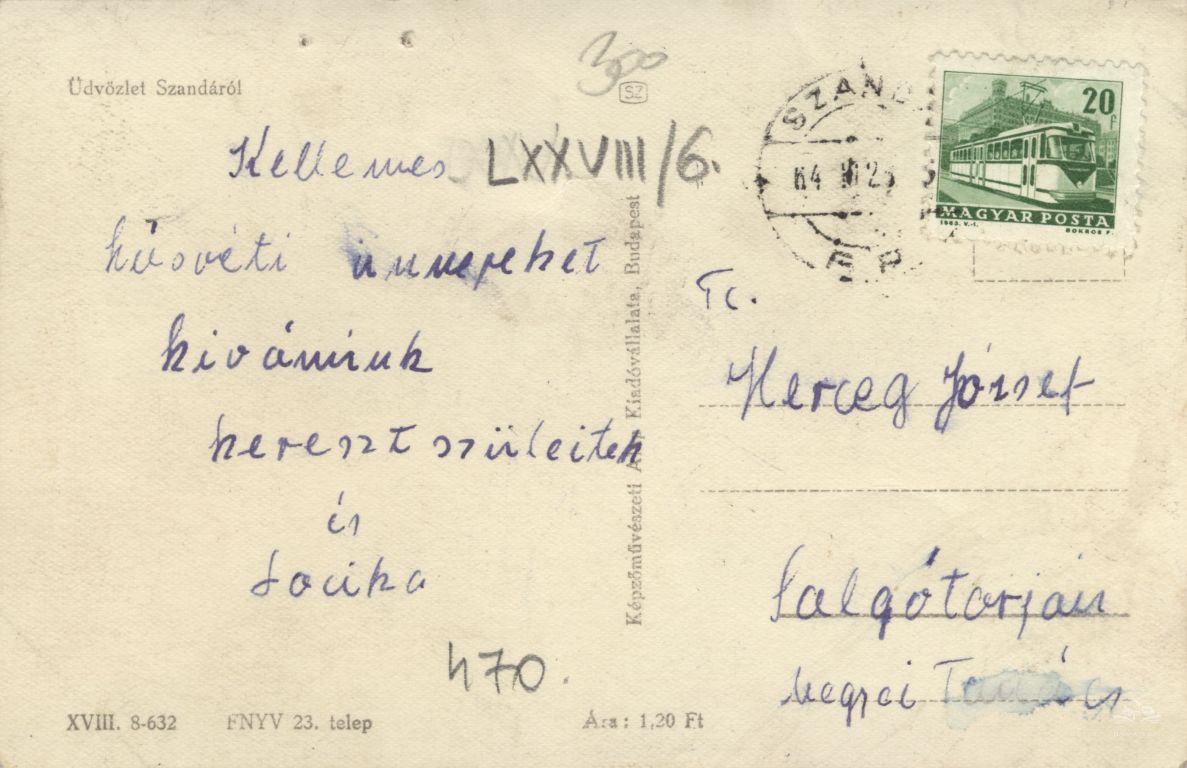 Üdvözlet Szandáról
300
SZ
Kellemes
LXXVIII/6.
húsvéti ünnepeket
kivánnuk
kereszt szüleitek
és
Locika
470.
XVIII. 8-632 FNYV 23. telep Ára: 1,20 Ft
Képzőművészeti Alap Kiadóvállalata, Budapest
SZAND
64 25
20 f
MAGYAR POSTA
1963. V.-I. BOKROS F.
Tc.
Herceg József
Salgótarján
megyei Tanács